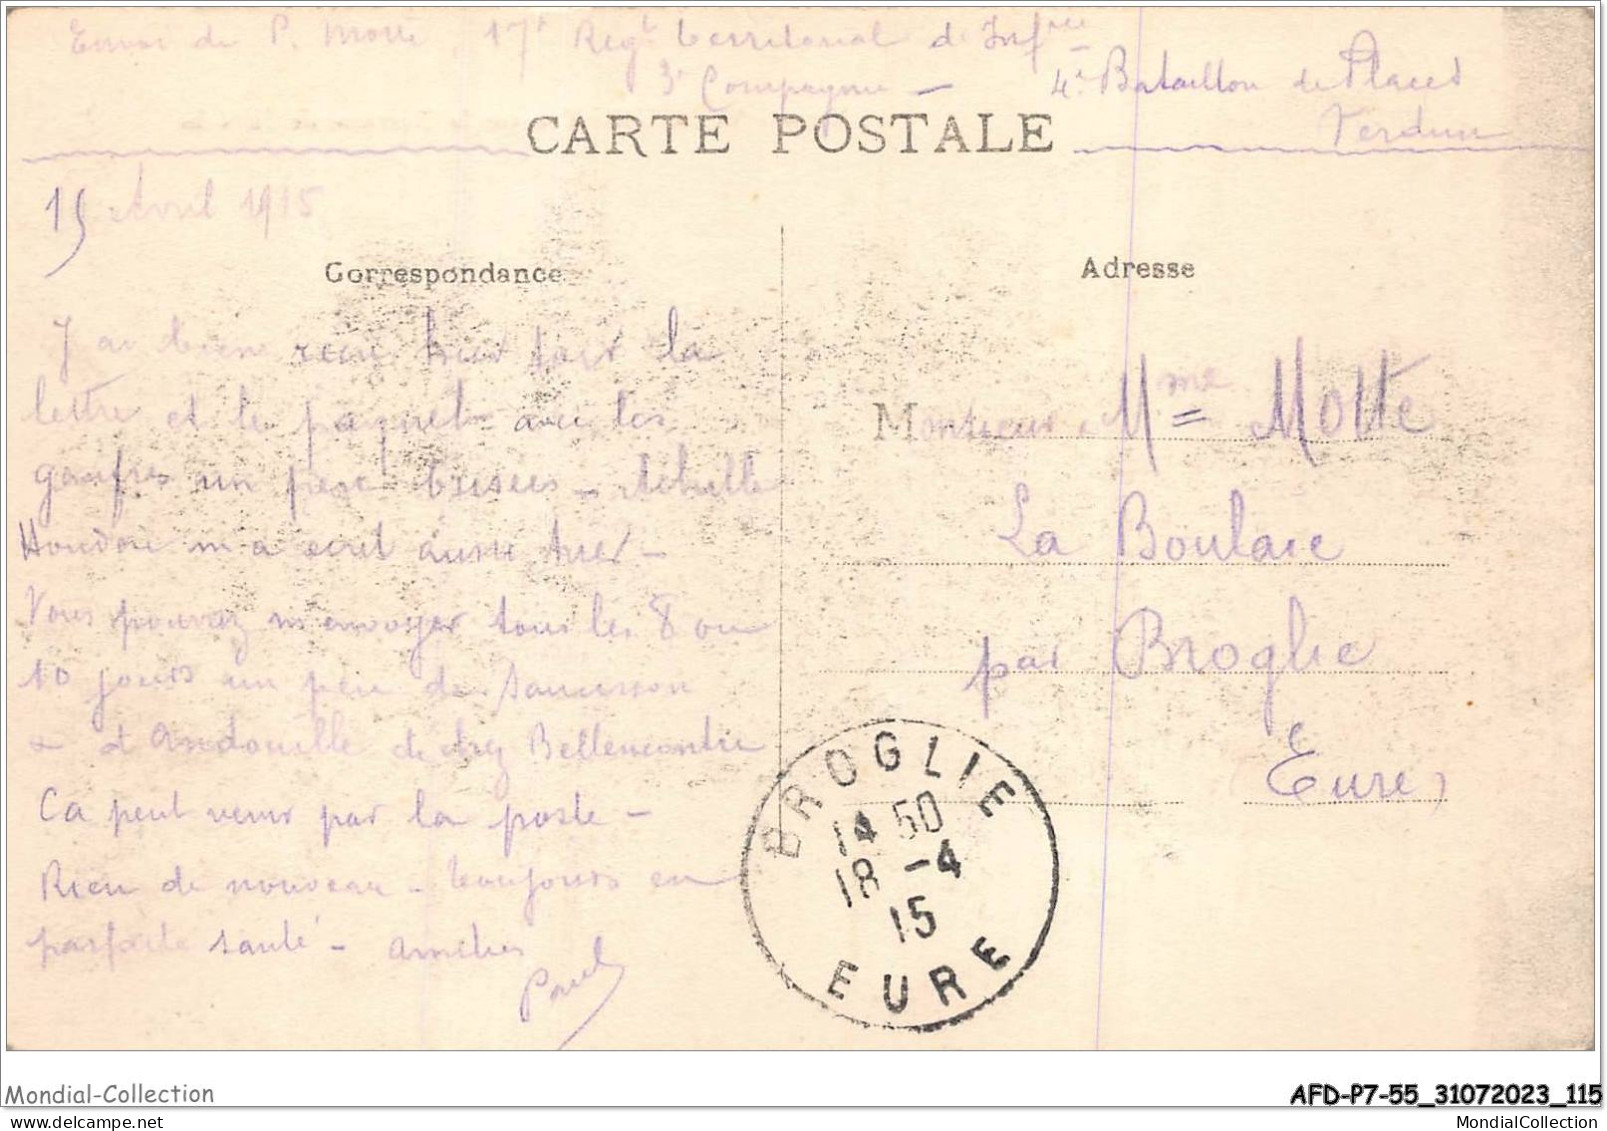 Envoi de P. Motte, 17e Regt territorial d'Infrie
3e Compagnie — 4e Bataillon de Place
Verdun
CARTE POSTALE
15 Avril 1915
Correspondance
Adresse
J'ai bien reçu hier soir la
lettre et le paquet avec les
gaufres un peu brisées — Achille
Houdou m'a écrit aussi hier —
Vous pouvez m'envoyer tous les 8 ou
10 jours un peu de saucisson
& d'andouille de chez Bellencontre
Ca peut venir par la poste —
Rien de nouveau — toujours en
parfaite santé — amitiés
Paul
Monsieur Mme Motte
La Boulaie
par Broglie
(Eure)
BROGLIE
14 50
18 -4
15
EURE
Mondial-Collection
AFD-P7-55_31072023_115
MondialCollection
MondialCollection.com